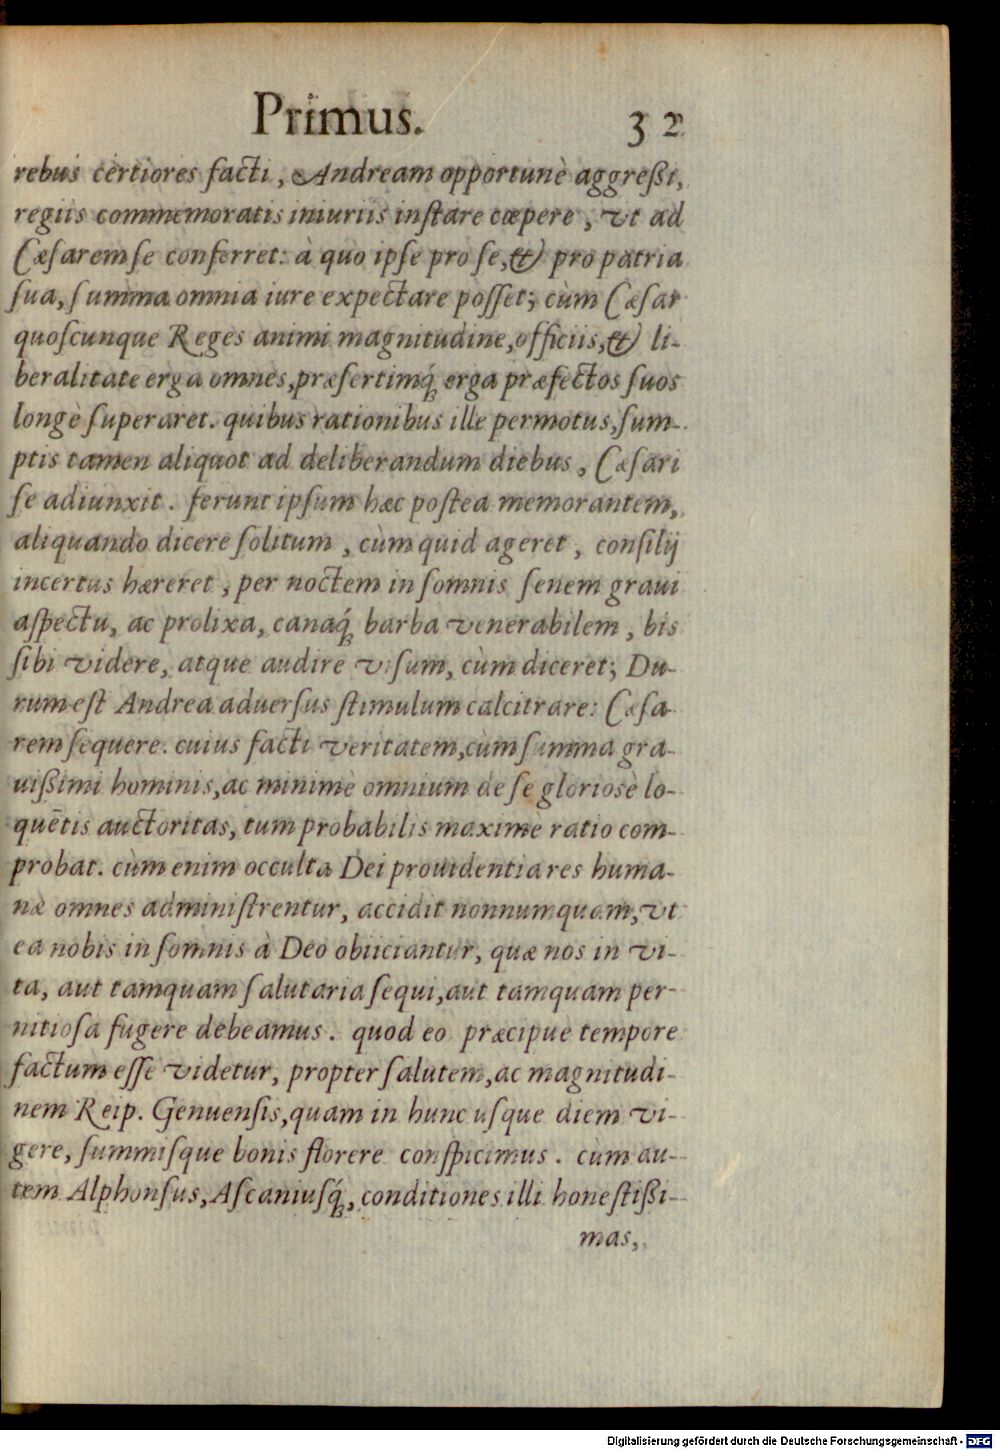 Primus. 32
rebus certiores facti, Andream opportunè aggreßi,
regiis commemoratis iniuriis instare cœpere, vt ad
Cæsarem se conferret: à quo ipse pro se, & pro patria
sua, summa omnia iure expectare posset; cùm Cæsar
quoscunque Reges animi magnitudine, officiis, & li-
beralitate erga omnes, præsertimq́; erga præfectos suos
longè superaret. quibus rationibus ille permotus, sum-
ptis tamen aliquot ad deliberandum diebus, Cæsari
se adiunxit. ferunt ipsum hæc postea memorantem,
aliquando dicere solitum, cùm quid ageret, consilij
incertus hæreret, per noctem in somnis senem graui
aspectu, ac prolixa, canaq́; barba venerabilem, bis
sibi videre, atque audire visum, cùm diceret; Du-
rum est Andrea aduersus stimulum calcitrare: Cæsa-
rem sequere. cuius facti veritatem, cùm summa gra-
uißimi hominis, ac minimè omnium de se gloriosè lo-
quētis auctoritas, tum probabilis maximè ratio com-
probat. cùm enim occulta Dei prouidentia res huma-
næ omnes administrentur, accidit nonnumquam, vt
ea nobis in somnis à Deo obiiciantur, quæ nos in vi-
ta, aut tamquam salutaria sequi, aut tamquam per-
nitiosa fugere debeamus. quod eo præcipue tempore
factum esse videtur, propter salutem, ac magnitudi-
nem Reip. Genuensis, quam in hunc usque diem vi-
gere, summisque bonis florere conspicimus. cùm au-
tem Alphonsus, Ascaniusq́; conditiones illi honestißi-
mas,
Digitalisierung gefördert durch die Deutsche Forschungsgemeinschaft - DFG